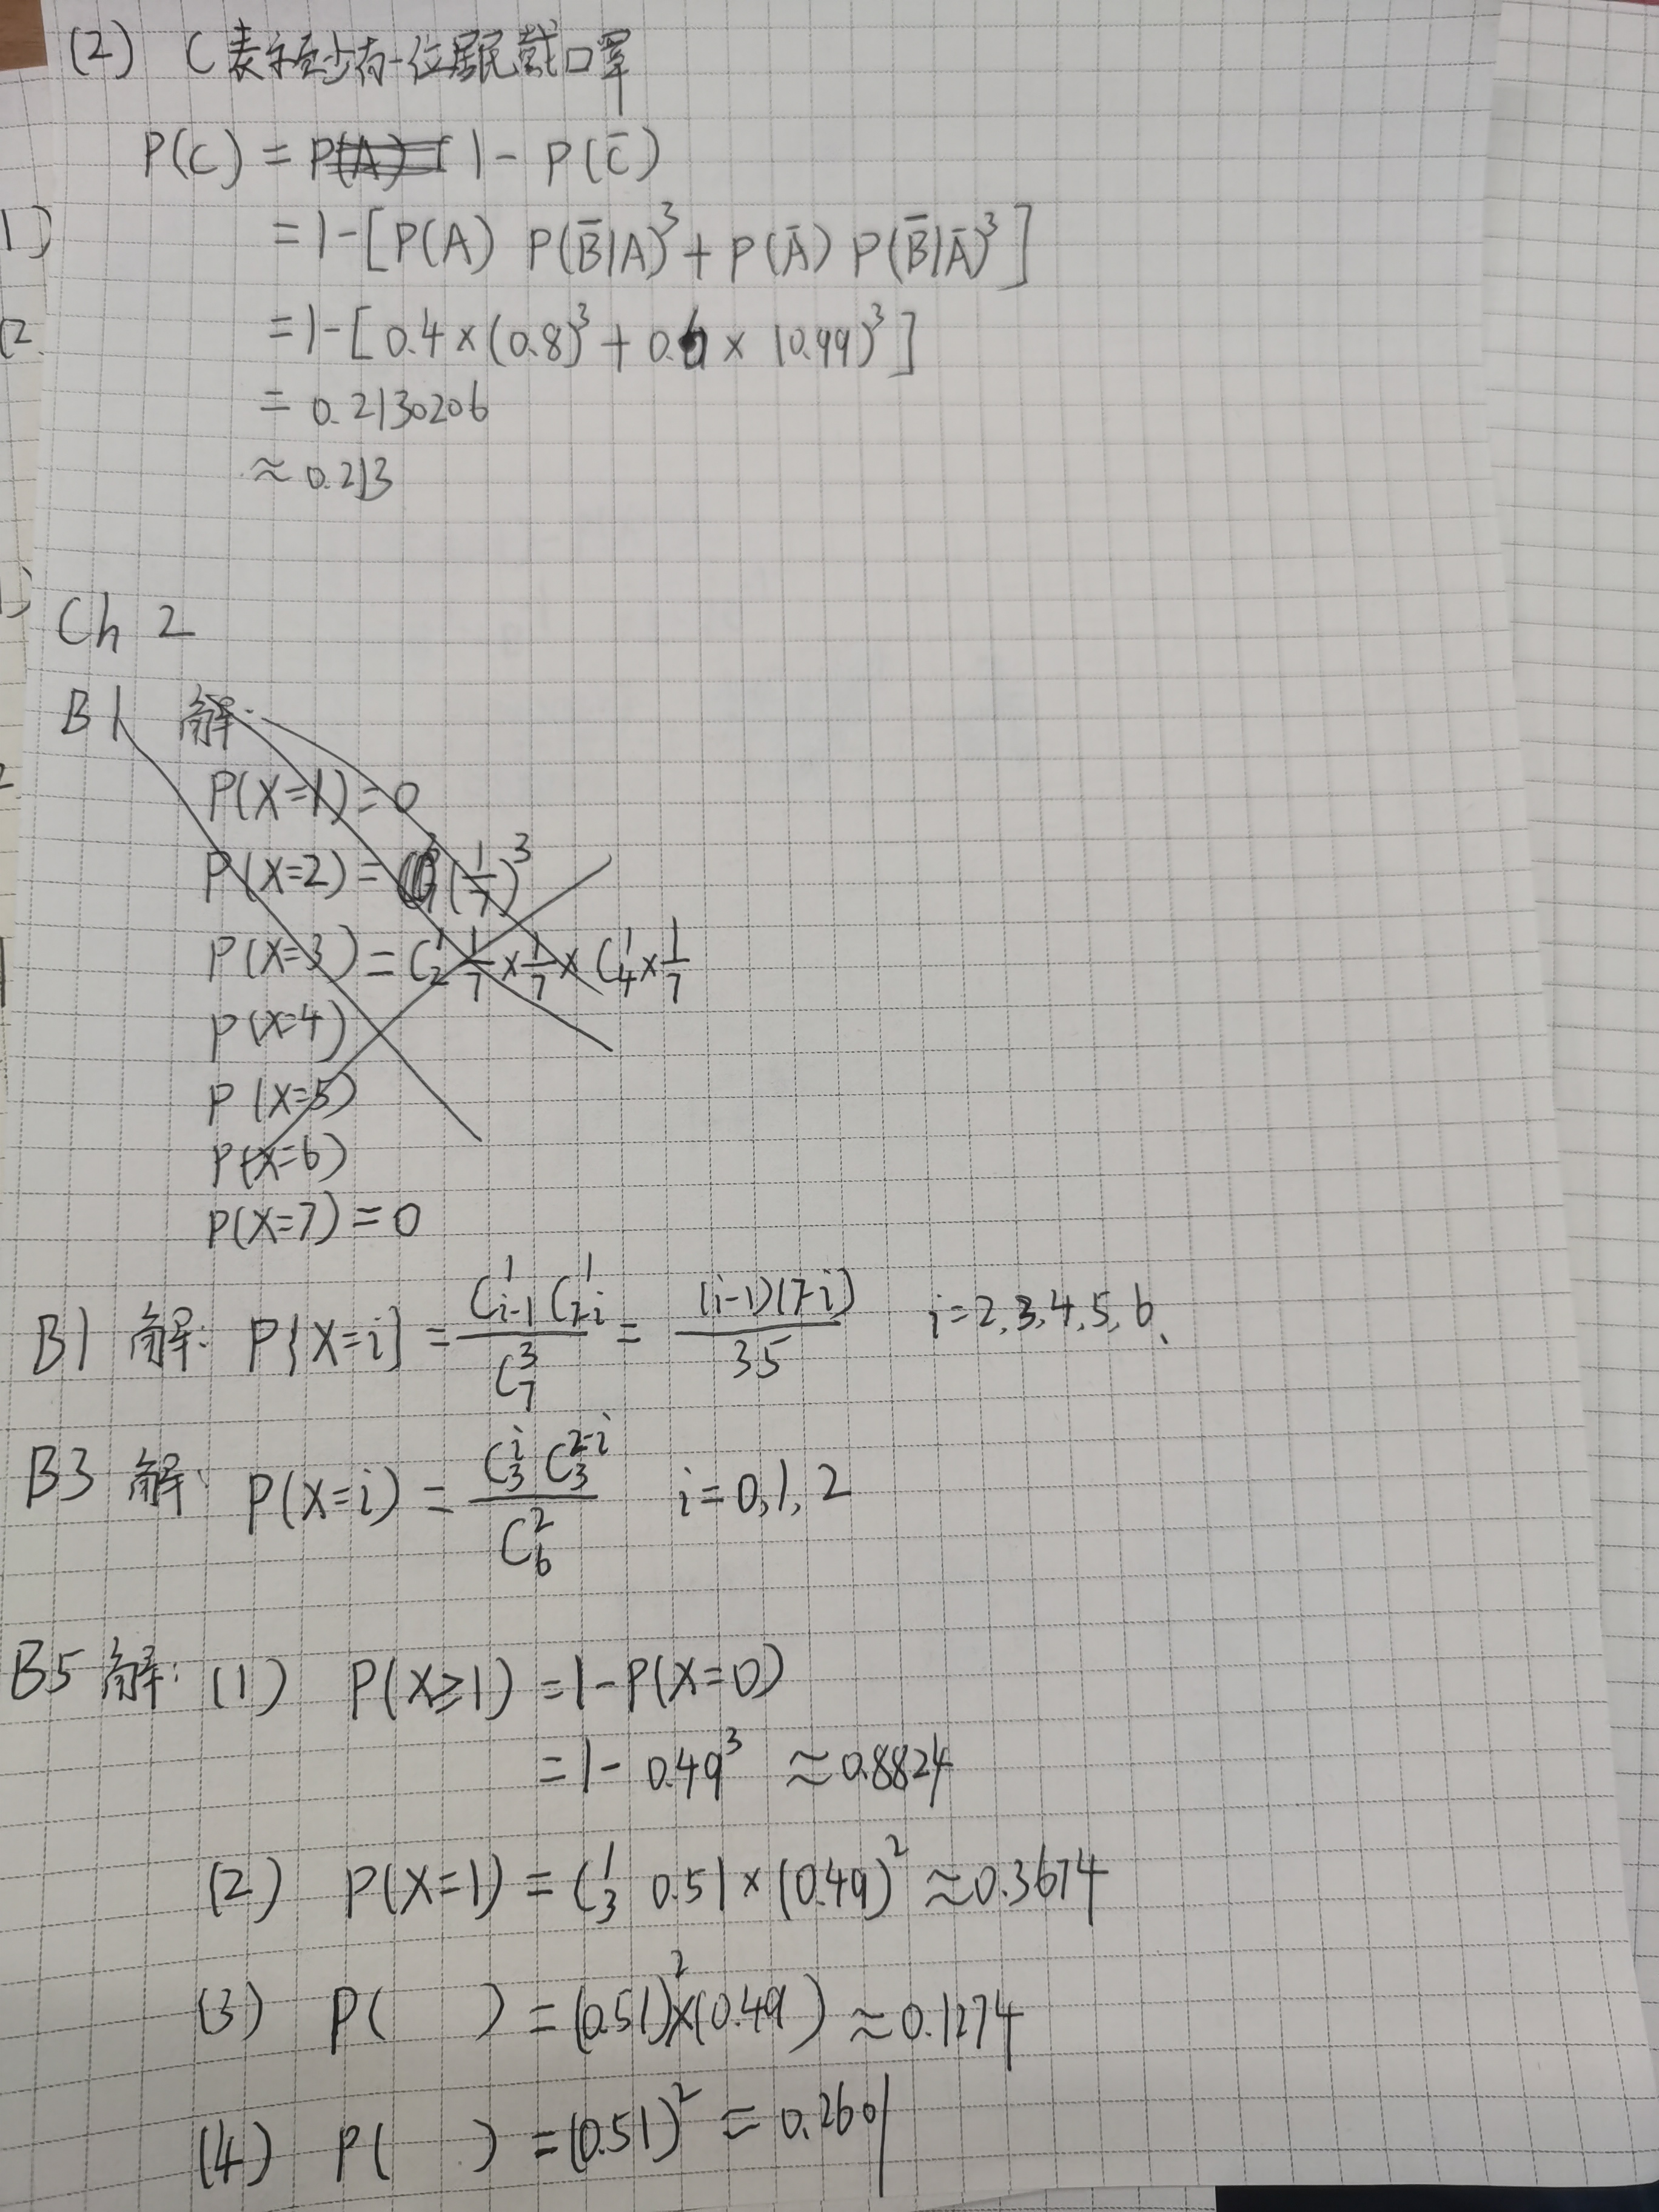 (2) C表示至少有一位居民戴口罩
P(C) = P(A) 1 - P(C̄)
= 1 - [P(A) P(B̄|A)³ + P(Ā) P(B̄|Ā)³]
= 1 - [0.4 × (0.8)³ + 0.6 × (0.99)³]
= 0.2130206
≈ 0.213
Ch 2
B1 解:
P(X=1) = 0
P(X=2) = (1/7)³
P(X=3) = C₂¹ 1/7 × 1/7 × C₄¹ × 1/7
P(X=4)
P(X=5)
P(X=6)
P(X=7) = 0
B1 解: P{X=i} = C¹ᵢ₋₁ C¹₇₋ᵢ / C₇³ = (i-1)(7-i) / 35 i=2,3,4,5,6、
B3 解: P(X=i) = C₃ⁱ C₃²⁻ⁱ / C₆² i=0,1,2
B5 解: (1) P(X≥1) = 1 - P(X=0)
= 1 - 0.49³ ≈ 0.8824
(2) P(X=1) = C₃¹ 0.51 × (0.49)² ≈ 0.3674
(3) P( ) = (0.51)² × (0.49) ≈ 0.1274
(4) P( ) = (0.51)² = 0.2601